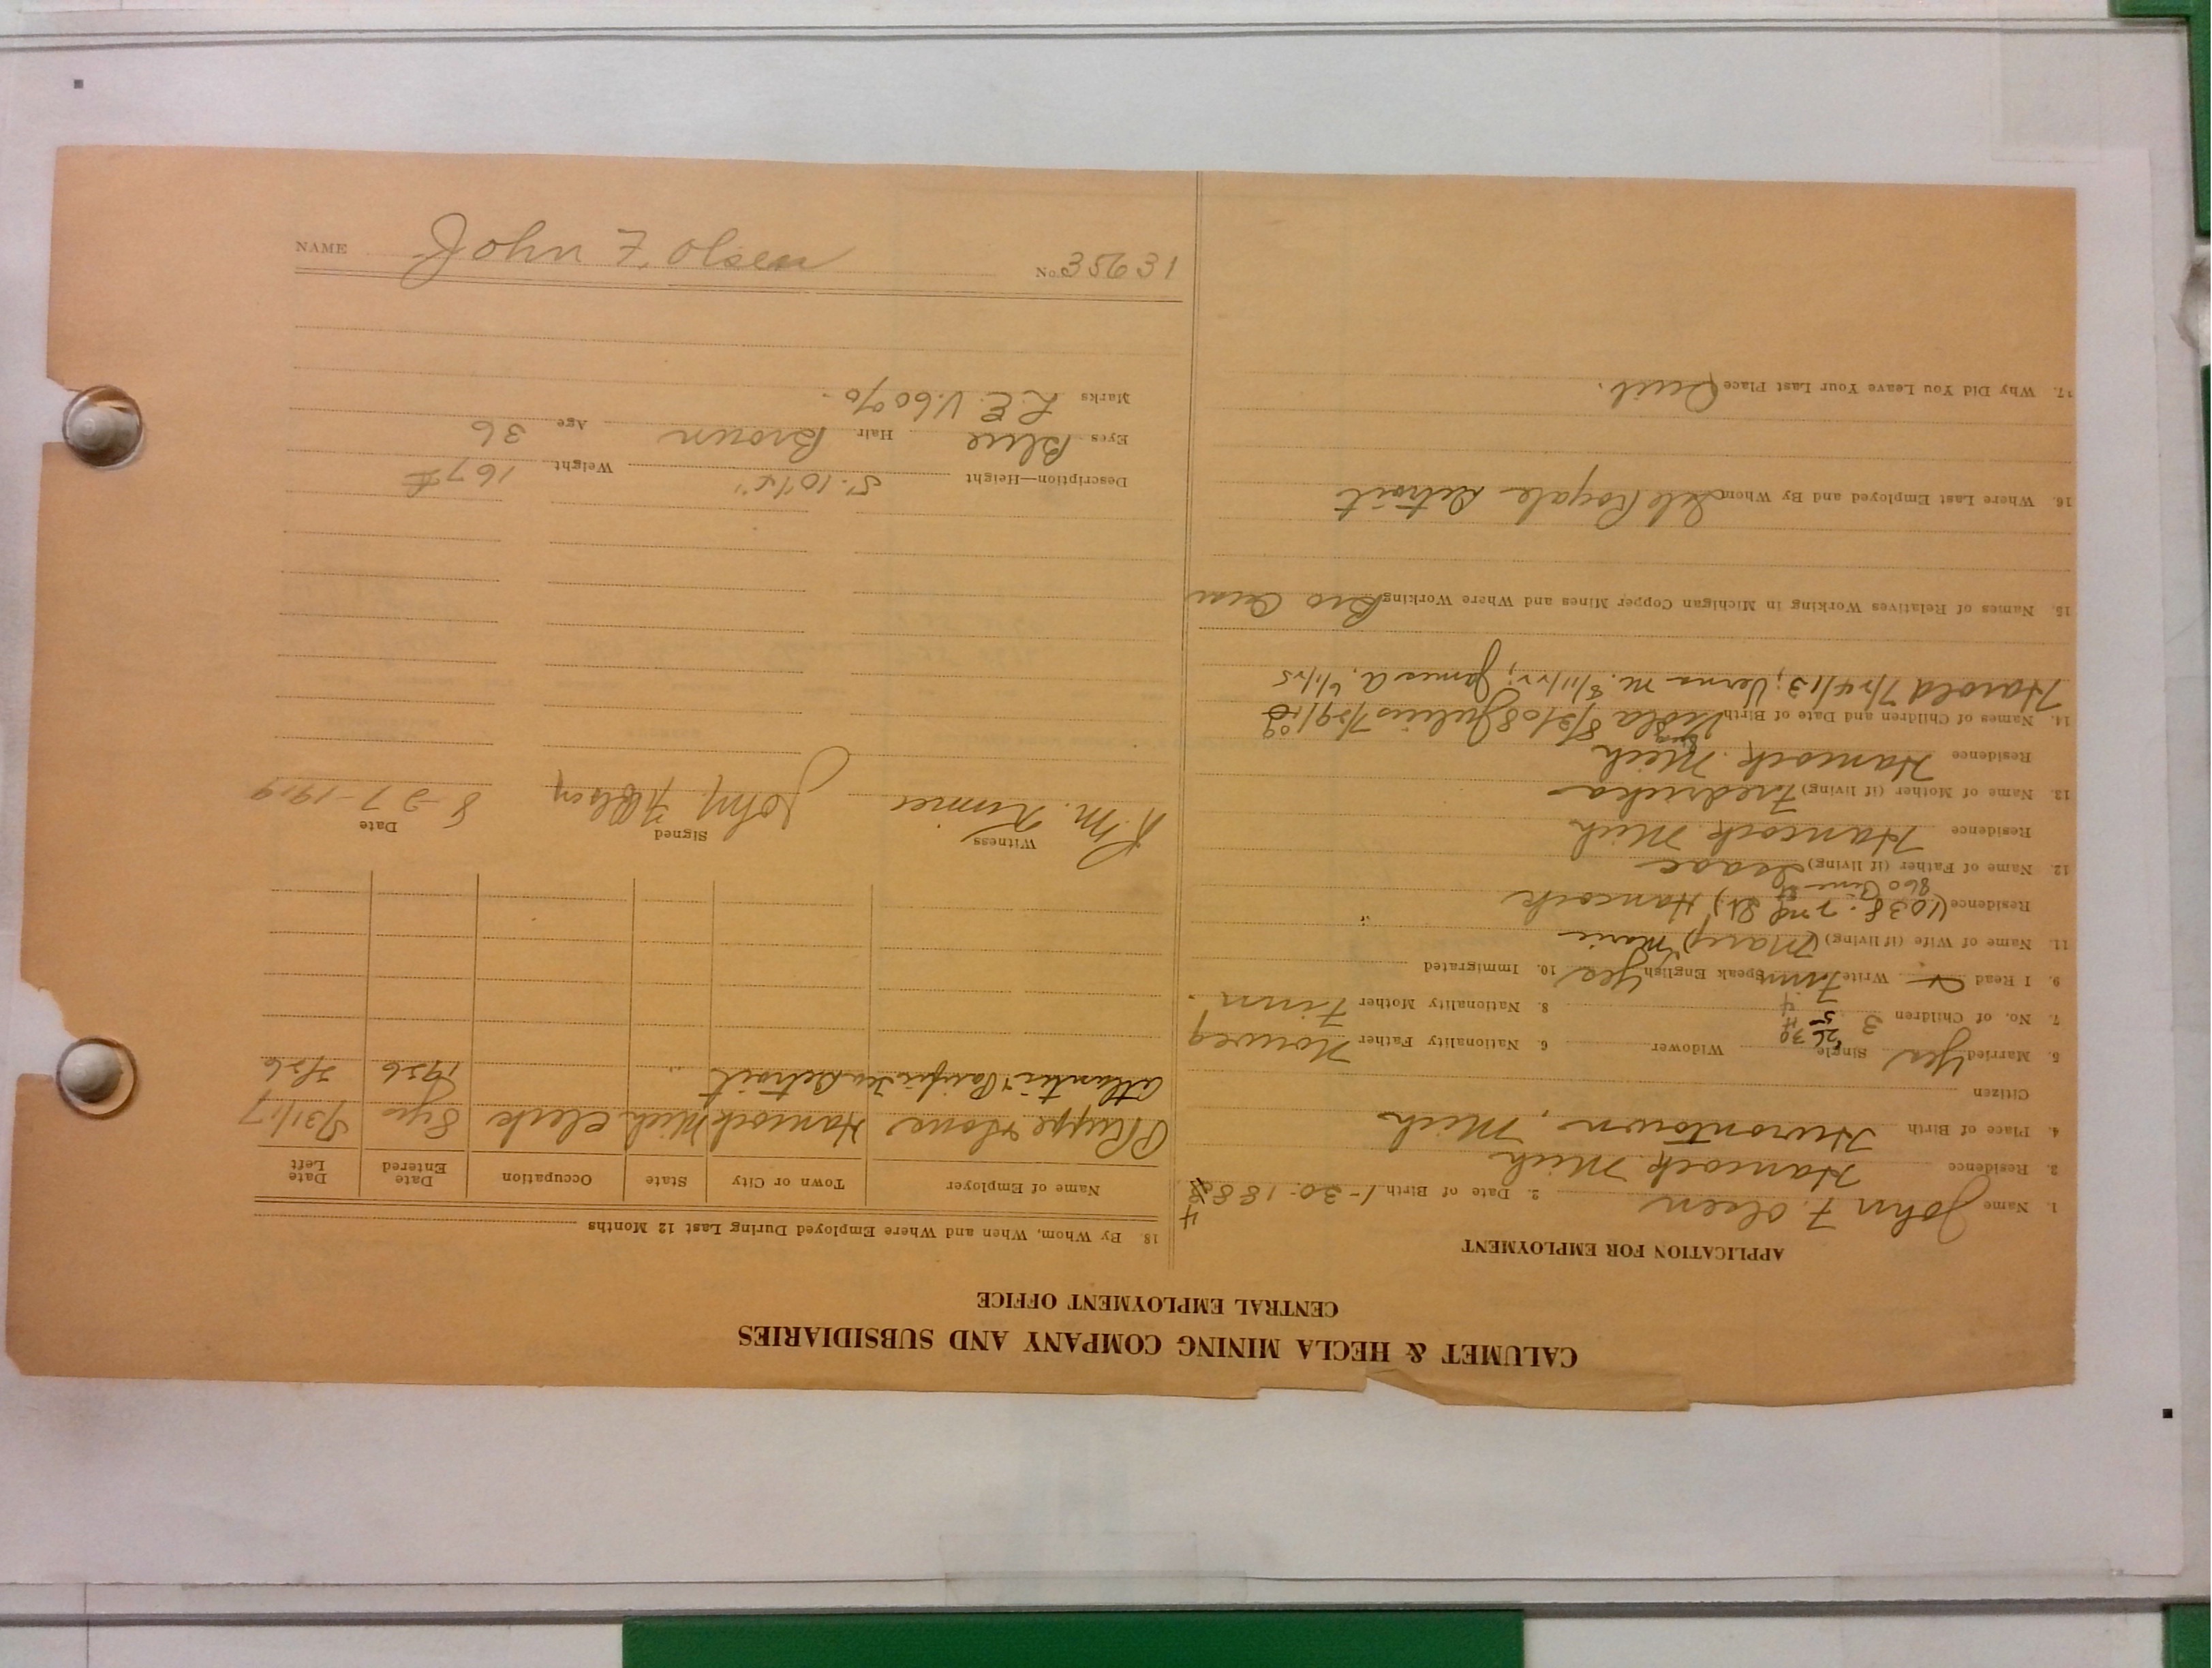 CALUMET & HECLA MINING COMPANY AND SUBSIDIARIES
CENTRAL EMPLOYMENT OFFICE
APPLICATION FOR EMPLOYMENT
1. Name John F. Olsen 2. Date of Birth 1-30-188 4
2. Residence Hancock Mich
4. Place of Birth Hurontown, Mich
Citizen
5. Married Yes Single Widower 6. Nationality Father Norweg
7. No. of Children 3 4 5 8. Nationality Mother Finn.
9. I Read Write Finn Speak English Yes 10. Immigrated
11. Name of Wife (if living) (Mary) Marie
Residence (1038. 2nd St) Hancock
860 St
12. Name of Father (if living)
Residence Hancock Mich
13. Name of Mother (if living) Fredricka
Residence Hancock Mich
14. Names of Children and Date of Birth Viola 8/3/08 Julius 7/29/
Harold 7/24/13; Verna M. 8/11/22; James A. 6/1/25
15. Names of Relatives Working in Michigan Copper Mines and Where Working Bro
16. Where Last Employed and By Whom Isle Royale Detroit
17. Why Did You Leave Your Last Place Quit.
18. By Whom, When and Where Employed During Last 12 Months
Name of Employer Town or City State Occupation Date Entered Date Left
P Ruppe & Sons Hancock Mich Clerk 8 yrs /31/17
Atlantic & Pacific Tea Detroit 1926
Witness Signed Date
John F Olson 8-27-1919
Description—Height 5'.10 Weight 167
Eyes Blue Hair Brown Age 36
Marks L.E. V. 60%.
NAME John F. Olsen No. 35631